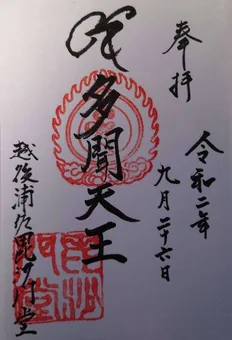 奉拝
令和二年
九月二十六日
多聞天王
越後浦佐毘沙門堂